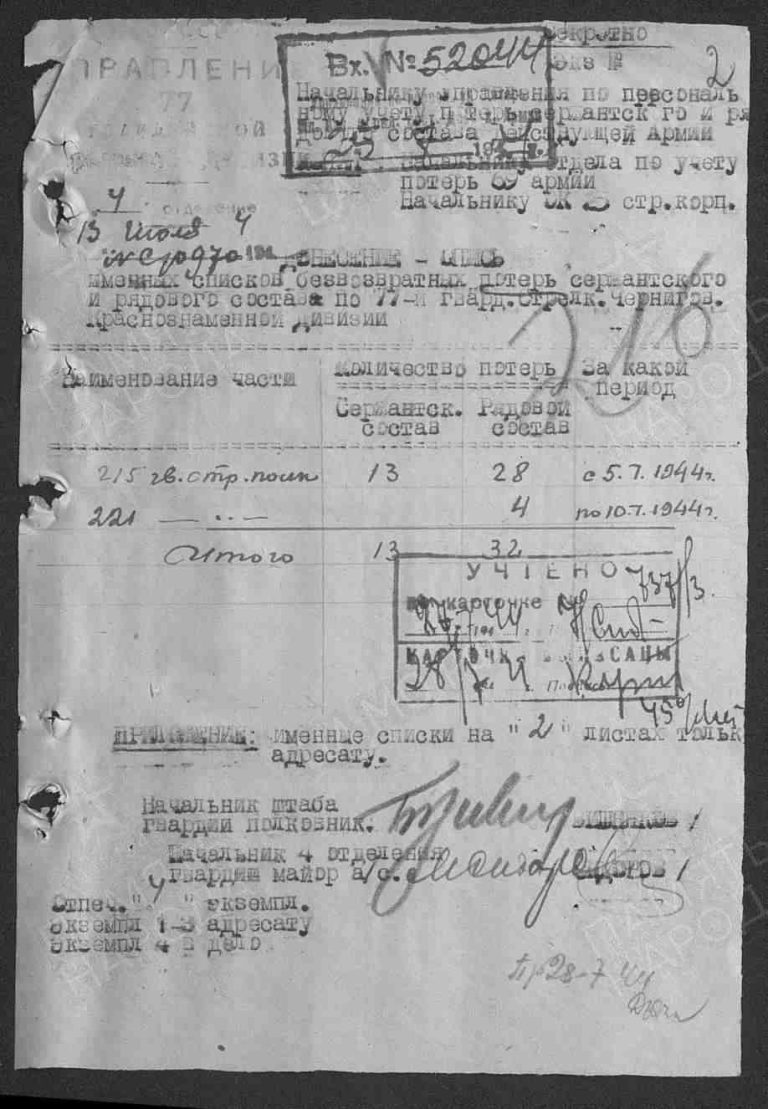 Секретно
Экз № 2
Вх. № 52044
УПРАВЛЕНИЕ
77
ГВАРДЕЙСКОЙ
ДИВИЗИИ
4 отделение
13 июля 4
Начальнику управления по персональ
ному учету потерь сержантского и ря
дового состава Действующей Армии
Начальнику отдела по учету
потерь 69 армии
Начальнику ОК 25 стр.корп.
ДОНЕСЕНИЕ - ОПИСЬ
именных списков безвозвратных потерь сержантского
и рядового состава по 77-й гвард.стрелк.Чернигов.
Краснознаменной дивизии
216
Наименование части
Количество потерь
За какой период
Сержантск. состав
Рядовой состав
215 гв. стр. полк 13 28 с 5.7.1944г.
221 — " — 4 по 10.7.1944г.
Итого 13 32
УЧТЕНО
по карточке №
737/3
28/7 44
ПРИЛОЖЕНИЕ: именные списки на "2" листах тольк
адресату.
Начальник штаба
гвардии полковник.
Начальник 4 отделения
гвардии майор а/с.
Отпеч."4" экземпл.
экземпл 1-3 адресату
экземпл 4 в дело
28-7 44